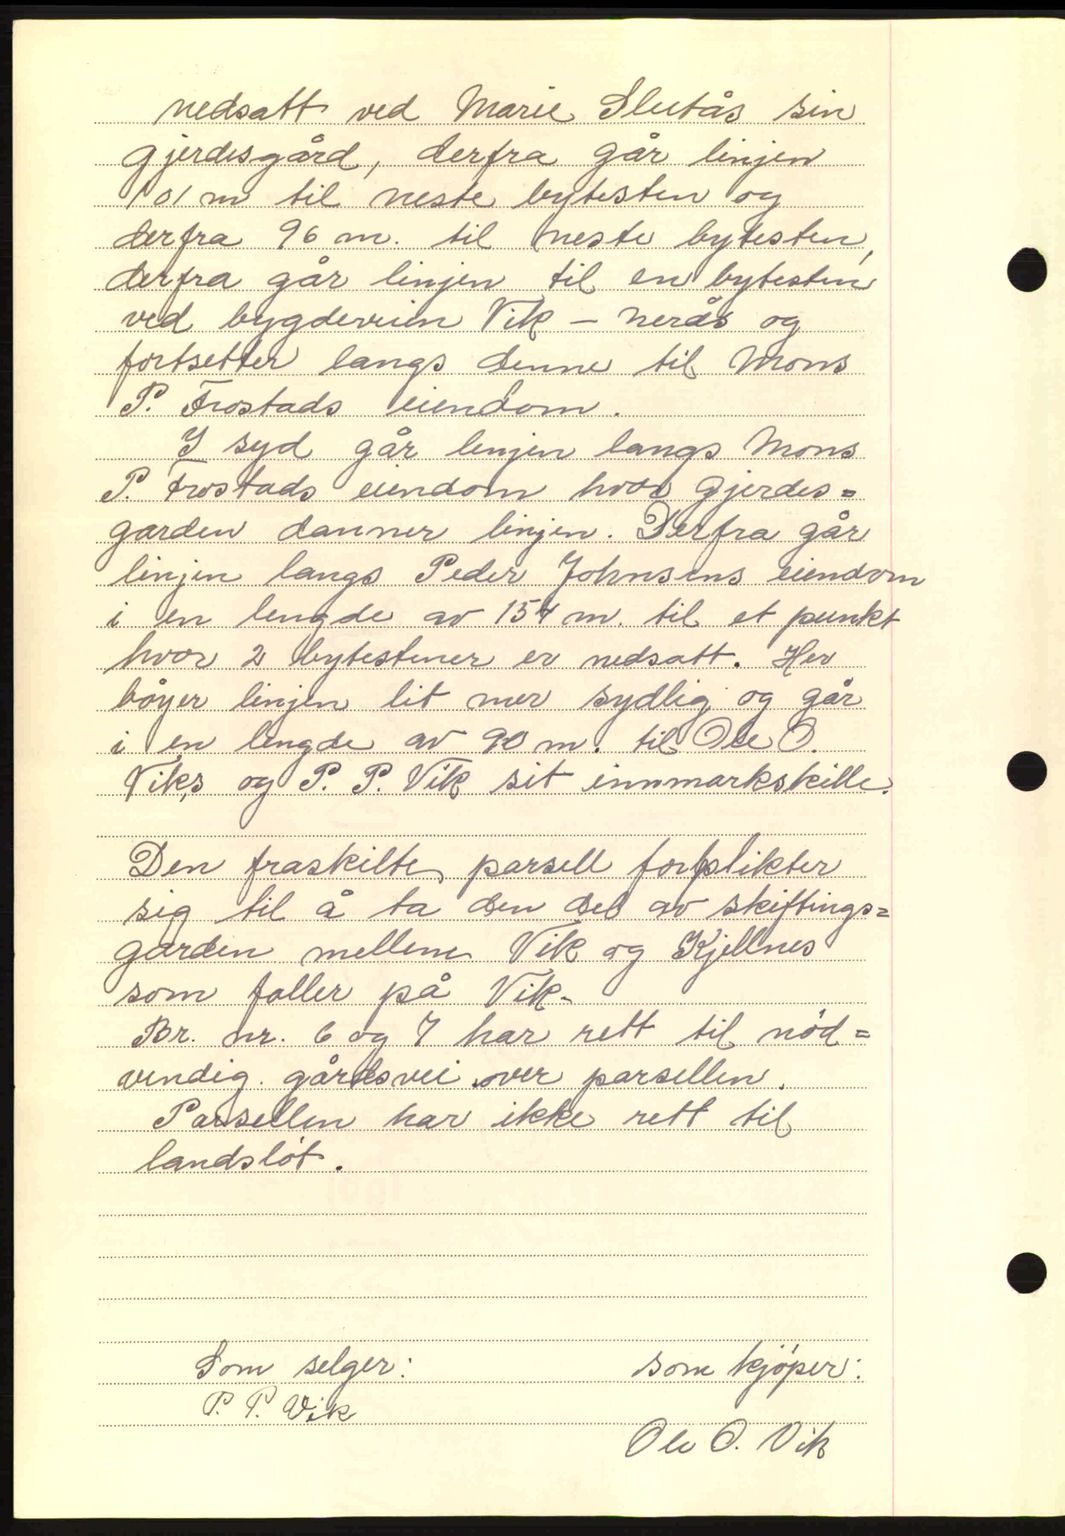 nedsatt ved Marie Slutås sin
gjerdesgård, derfra går linjen
101 m til neste bytesten og
derfra 96 m. til neste bytesten,
derfra går linjen til en bytesten
ved bygdeveien Vik – nerås og
fortsetter langs denne til Mons
P. Frostads eiendom.
I syd går linjen langs Mons
P. Frostads eiendom hvor gjerdes=
garden danner linjen. Derfra går
linjen langs Peder Johnsens eiendom
i en lengde av 154 m. til et punkt
hvor 2 bytestener er nedsatt. Her
böyer linjen lit mer sydlig og går
i en lengde av 90 m. til Ole O.
Viks og P. P. Vik sit innmarkskille.
Den fraskilte parsell forplikter
sig til å ta den del av skiftings=
garden mellem Vik og Kjellnes
som faller på Vik.
Br. nr. 6 og 7 har rett til nöd=
vendig gårdsvei over parsellen.
Parsellen har ikke rett til
landslöt.
Som selger: som kjöper:
P. P. Vik
Ole O. Vik